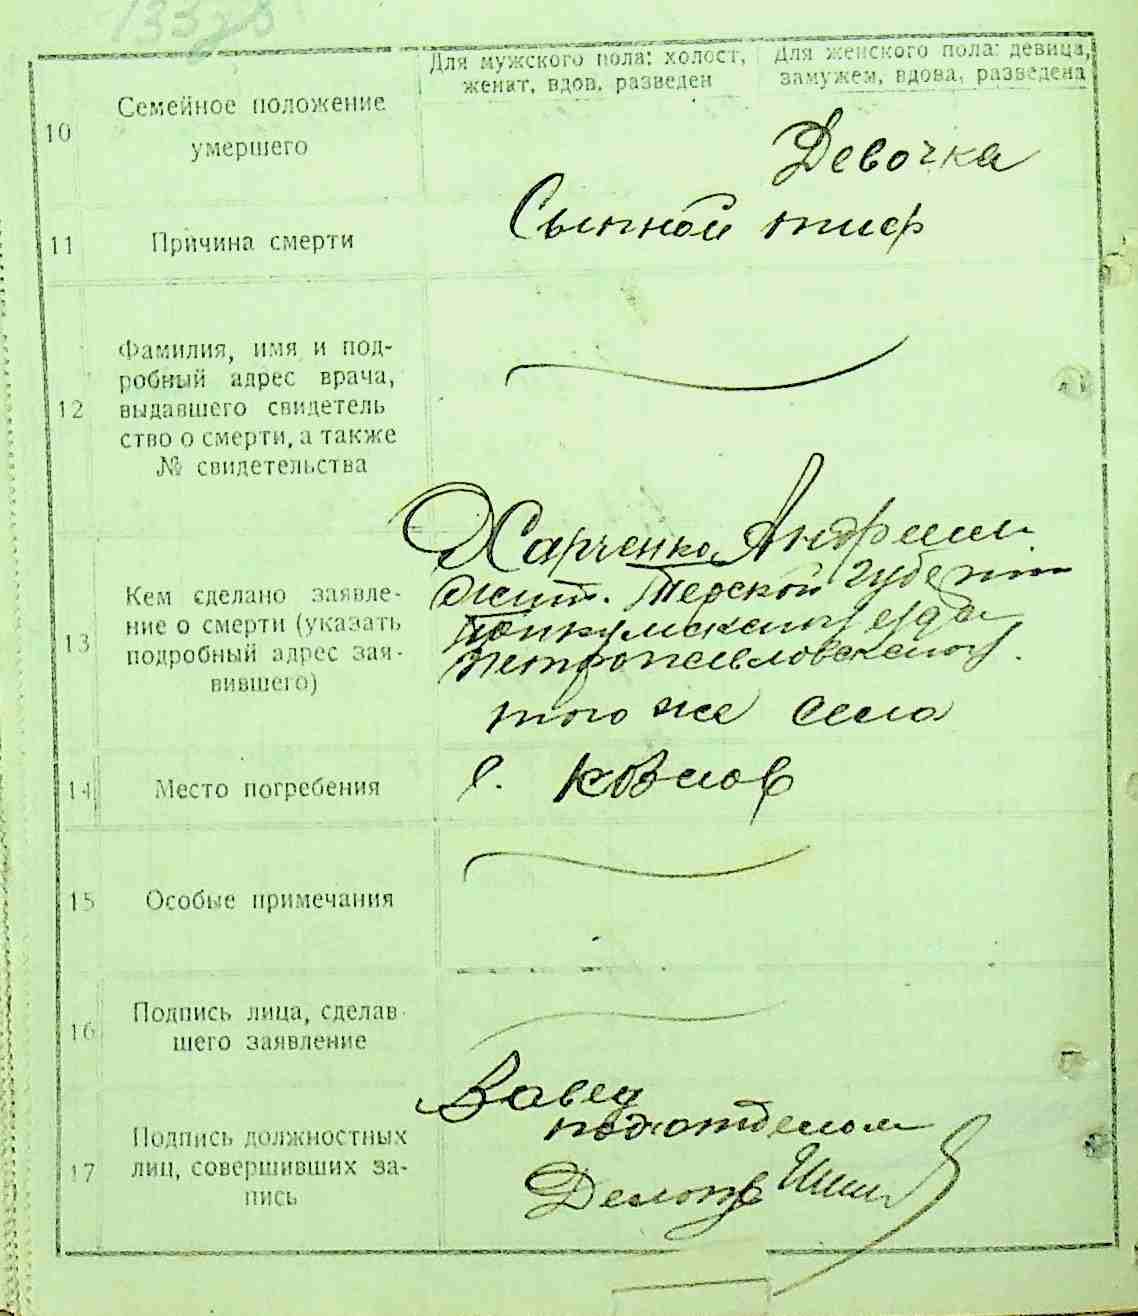 13328
Для мужского пола: холост,
женат, вдов, разведен
Для женского пола: девица,
замужем, вдова, разведена
10
Семейное положение
умершего
Девочка
11
Причина смерти
Сыпной тиф
12
Фамилия, имя и под-
робный адрес врача,
выдавшего свидетель
ство о смерти, а также
№ свидетельства
13
Кем сделано заявле-
ние о смерти (указать
подробный адрес зая-
вившего)
Харченко Андреем
жит. Терской губернии
уезда
Петропавловской
того же села
14
Место погребения
с.
15
Особые примечания
16
Подпись лица, сделав-
шего заявление
17
Подпись должностных
лиц, совершивших за-
пись
Завед
подотделом
Делопр